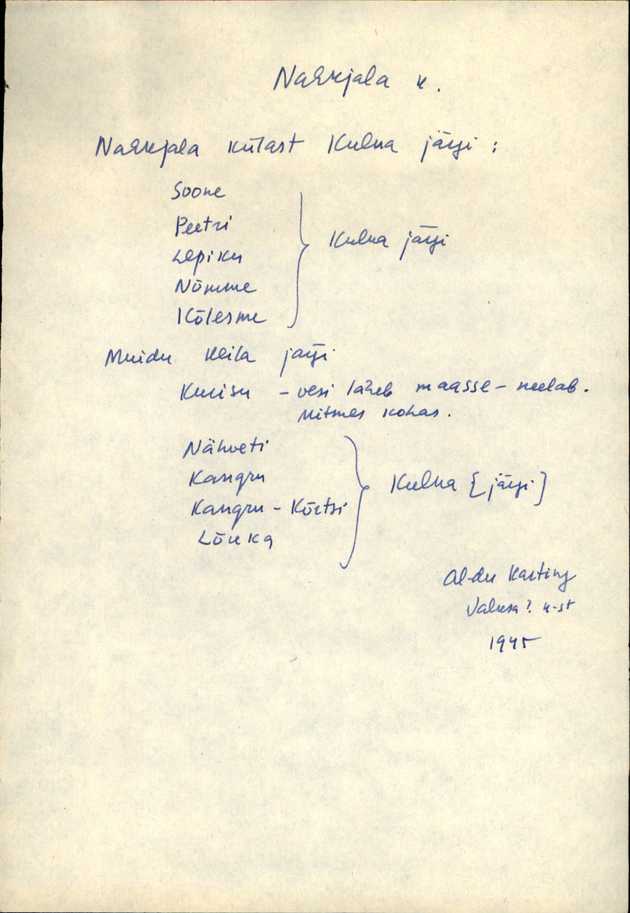 Nakkjala k.
Nakkjala külast Kulna järgi :
Soone
Peetri
Lepiku
Nõmme
Kõlesme
Kulna järgi
Muidu Keila järgi
Kurisu – vesi läheb maasse – neelab.
Mitmes kohas.
Nähveti
Kangru
Kangru – Kõrtsi
Lõuka
Kulna [järgi]
Karting
k-st
1945